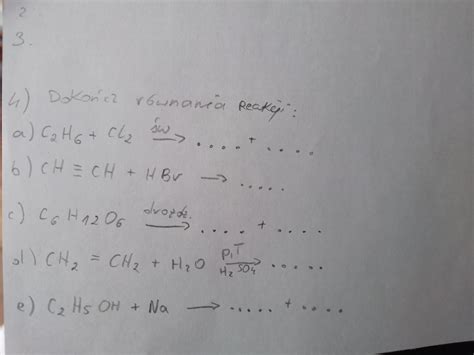 2.
3.
4) Dokończ równania reakcji:
a) C2H6 + Cl2 św → .... + ....
b) CH ≡ CH + HBr → .....
c) C6H12O6 drożdż. → .... + ....
d) CH2 = CH2 + H2O p,T H2SO4 → .....
e) C2H5OH + Na → ..... + ....